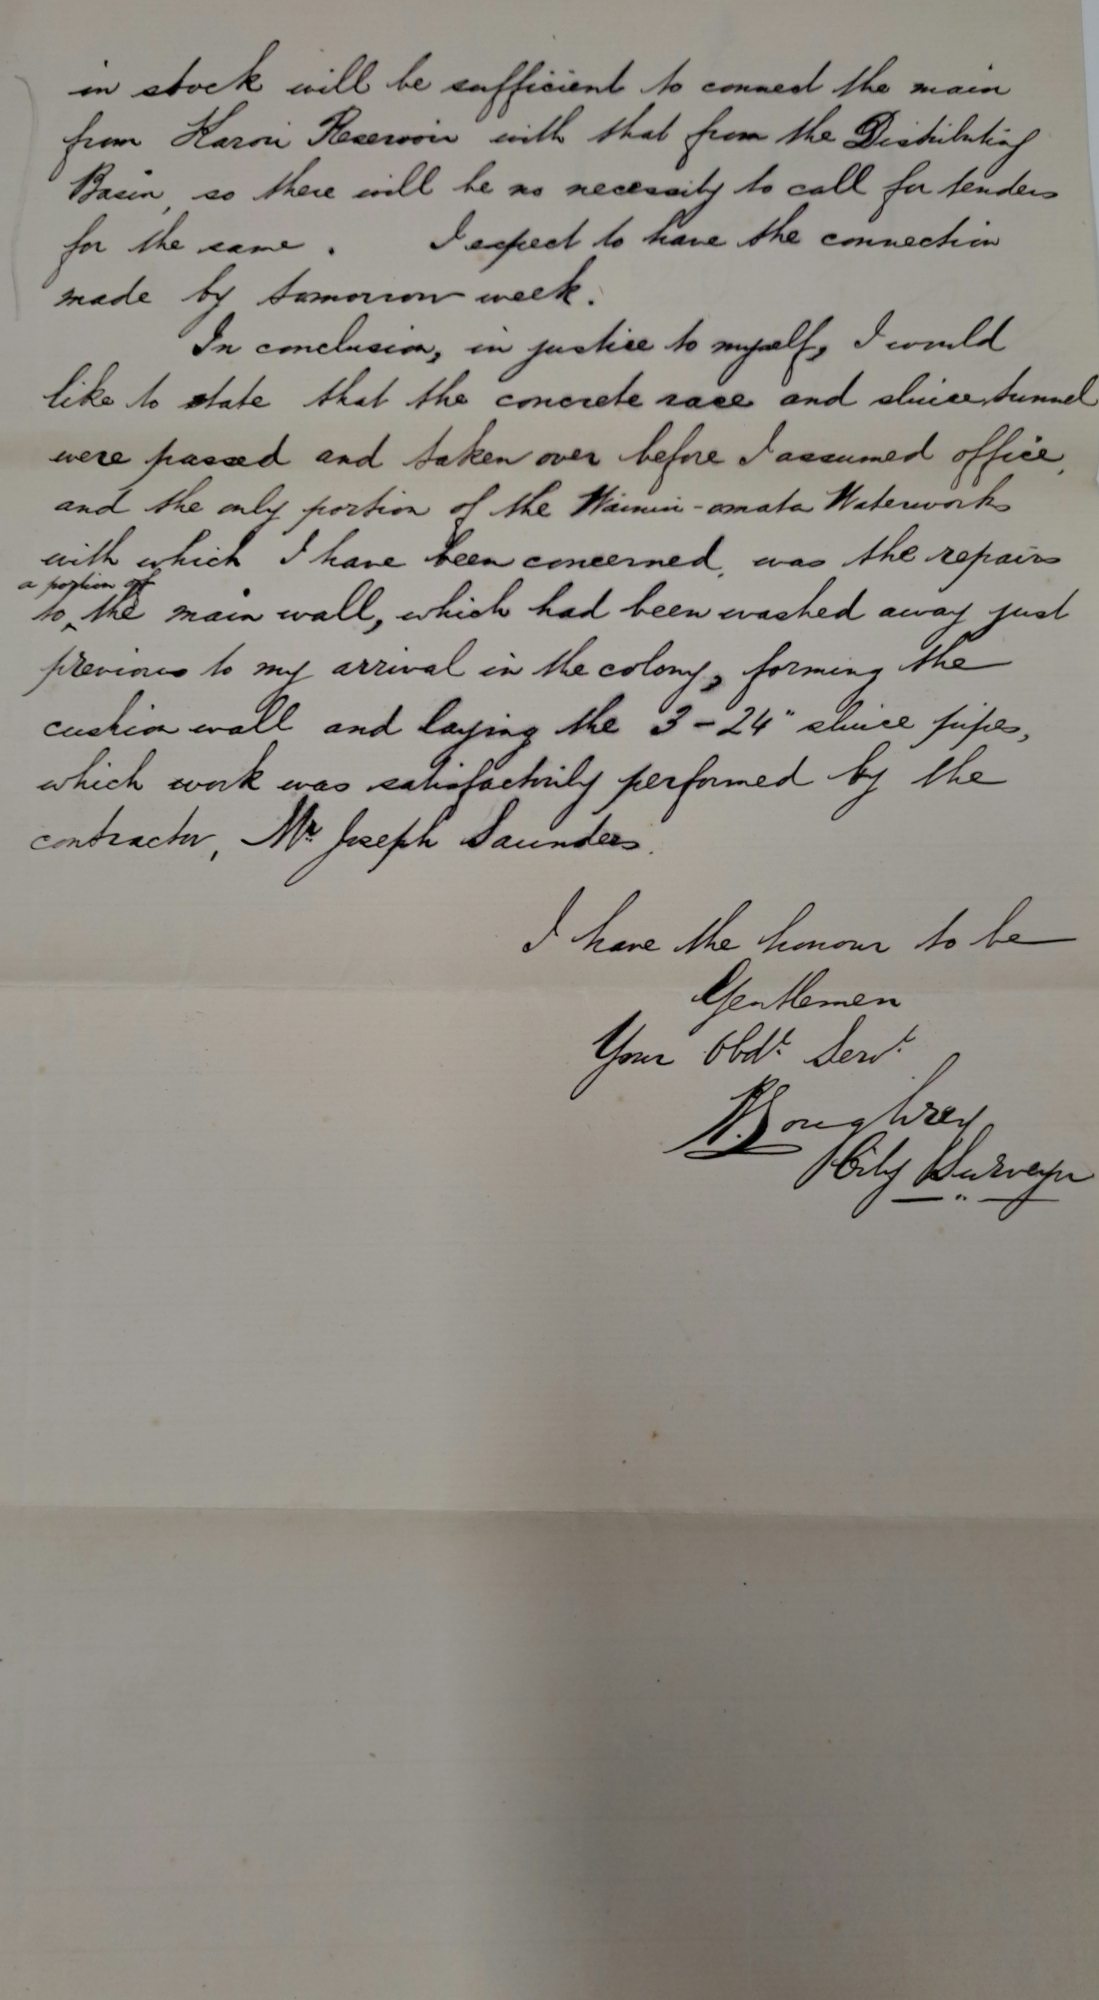 in stock will be sufficient to connect the main
from Karori Reservoir with that from the Distributing
Basin, so there will be no necessity to call for tenders
for the same. I expect to have the connection
made by tomorrow week.
In conclusion, in justice to myself, I would
like to state that the concrete race and sluice tunnel
were passed and taken over before I assumed office,
and the only portion of the Wainui-omata Waterworks
with which I have been concerned, was the repairs
a portion of
to the main wall, which had been washed away just
previous to my arrival in the colony, forming the
cushion wall and laying the 3-24" sluice pipes,
which work was satisfactorily performed by the
contractor, Mr Joseph Saunders.
I have the honour to be
Gentlemen
Your Obdt. Servt.
Loughrey
City Surveyor